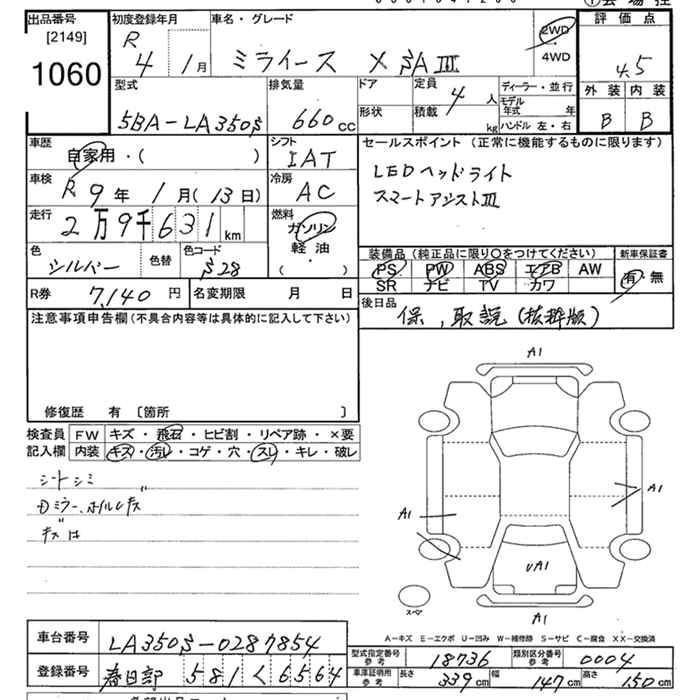 出品番号
[2149]
1060
初度登録年月
R 4 1月
車名・グレード
ミライース X SAⅢ
2WD
4WD
評価点
4.5
外装 内装
B B
型式
5BA-LA350S
排気量
660cc
ドア
形状
定員
4人
積載
kg
ディーラー・並行
モデル年式 年
ハンドル 左・右
車歴
自家用・( )
シフト
IAT
車検
R 9年 1月(13日)
冷房
AC
走行
2万9千631km
燃料
ガソリン
軽油
( )
色
シルバー
色替
色コード
S28
R券 7,140円
名変期限 月 日
セールスポイント (正常に機能するものに限ります)
LEDヘッドライト
スマートアシストⅢ
装備品 (純正品に限り○をつけてください)
PS PW ABS エアB AW
SR ナビ TV カワ
新車保証書
有・無
後日品
保,取説(抜粋版)
注意事項申告欄(不具合内容等は具体的に記入して下さい)
修復歴 有 [箇所 ]
検査員記入欄
FW キズ・飛石・ヒビ割・リペア跡・×要
内装 キズ・汚レ・コゲ・穴・スレ・キレ・破レ
シートシミ
A1
A1
A1
UA1
A1
スペア
A-キズ E-エクボ U-凹み W-補修跡 S-サビ C-腐食 XX-交換済
車台番号 LA350S-0287854
登録番号 春日部 581 く 6564
型式指定番号 参考 18736
類別区分番号 参考 0004
車庫証明用 参考 長さ 339cm 幅 147cm 高さ 150cm